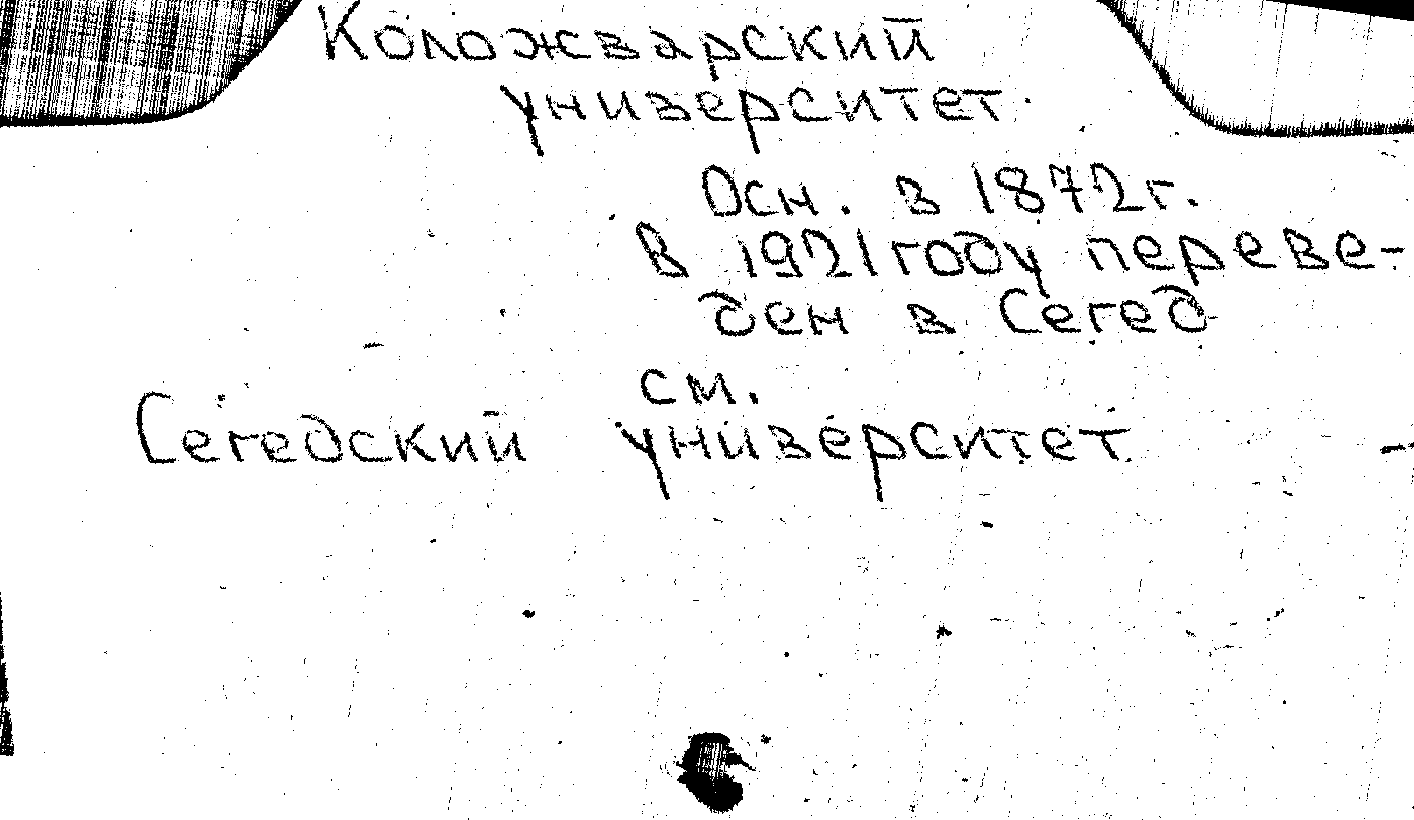 Коложварский
университет.
Осн. в 1872г.
В 1921 году переве-
ден в Сегед
см.
Сегедский университет